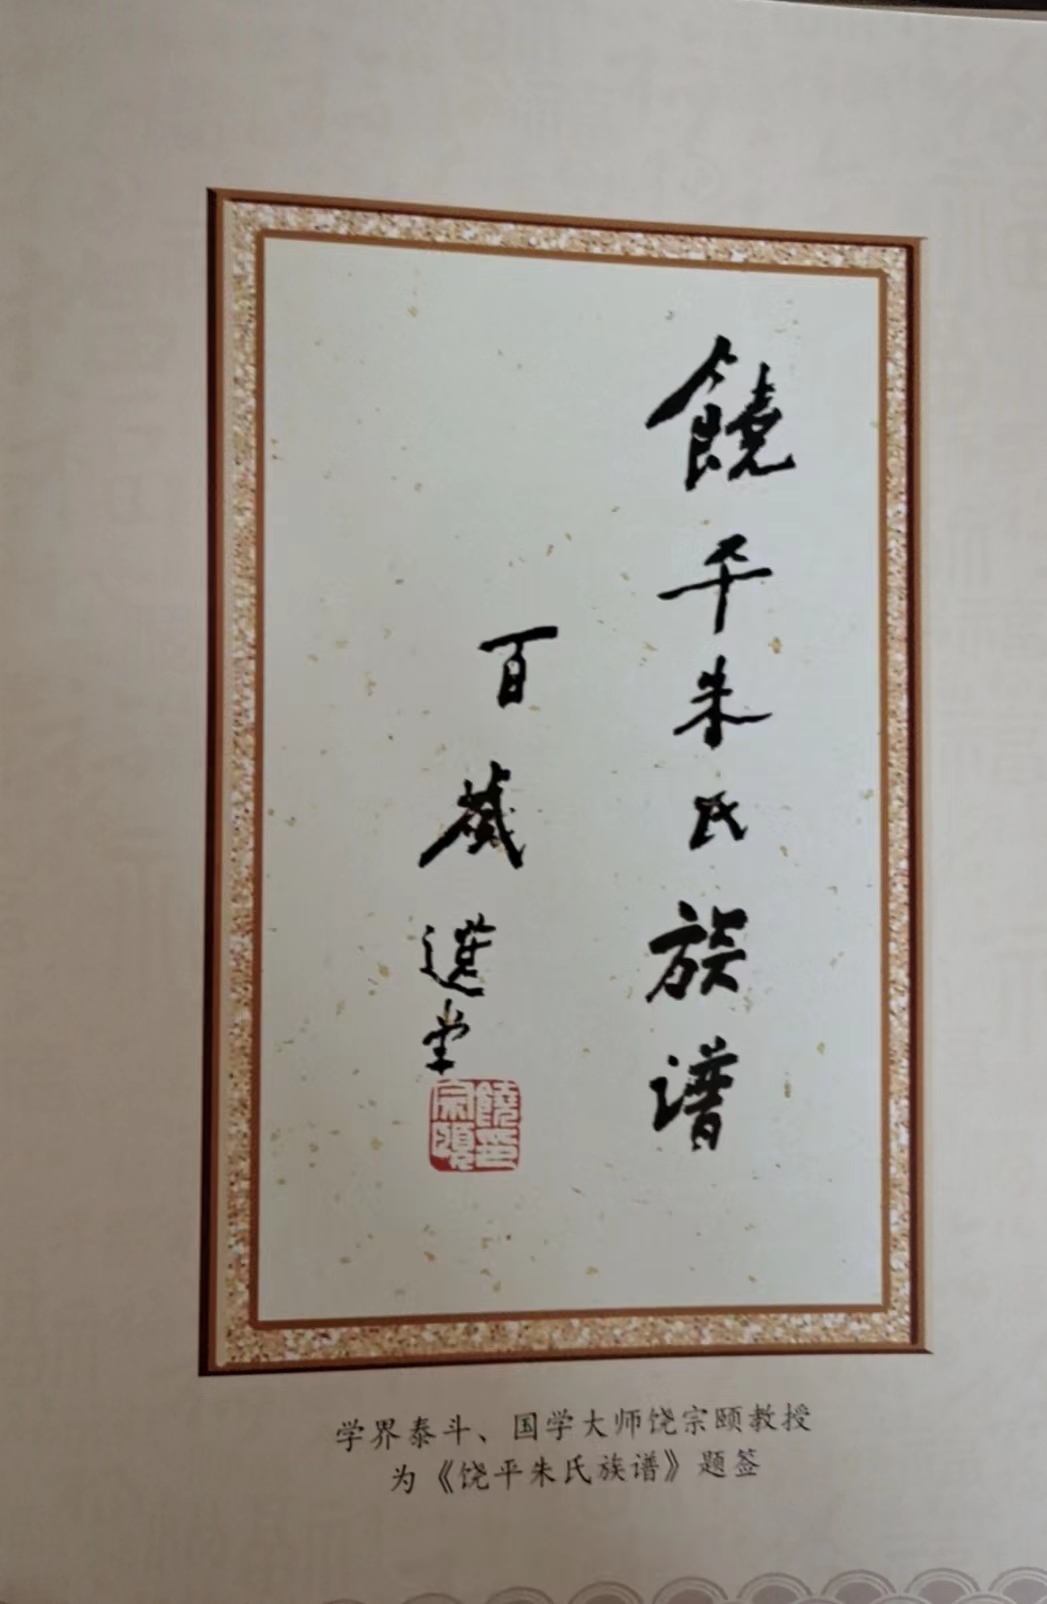 饒平朱氏族譜
百歲選堂
饒宗頤印
学界泰斗、国学大师饶宗颐教授
为《饶平朱氏族谱》题签